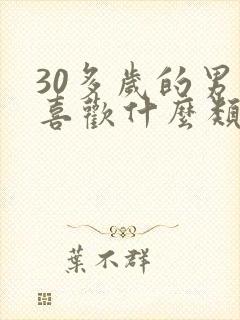 30多歲的男
喜歡什麼類
葉不群